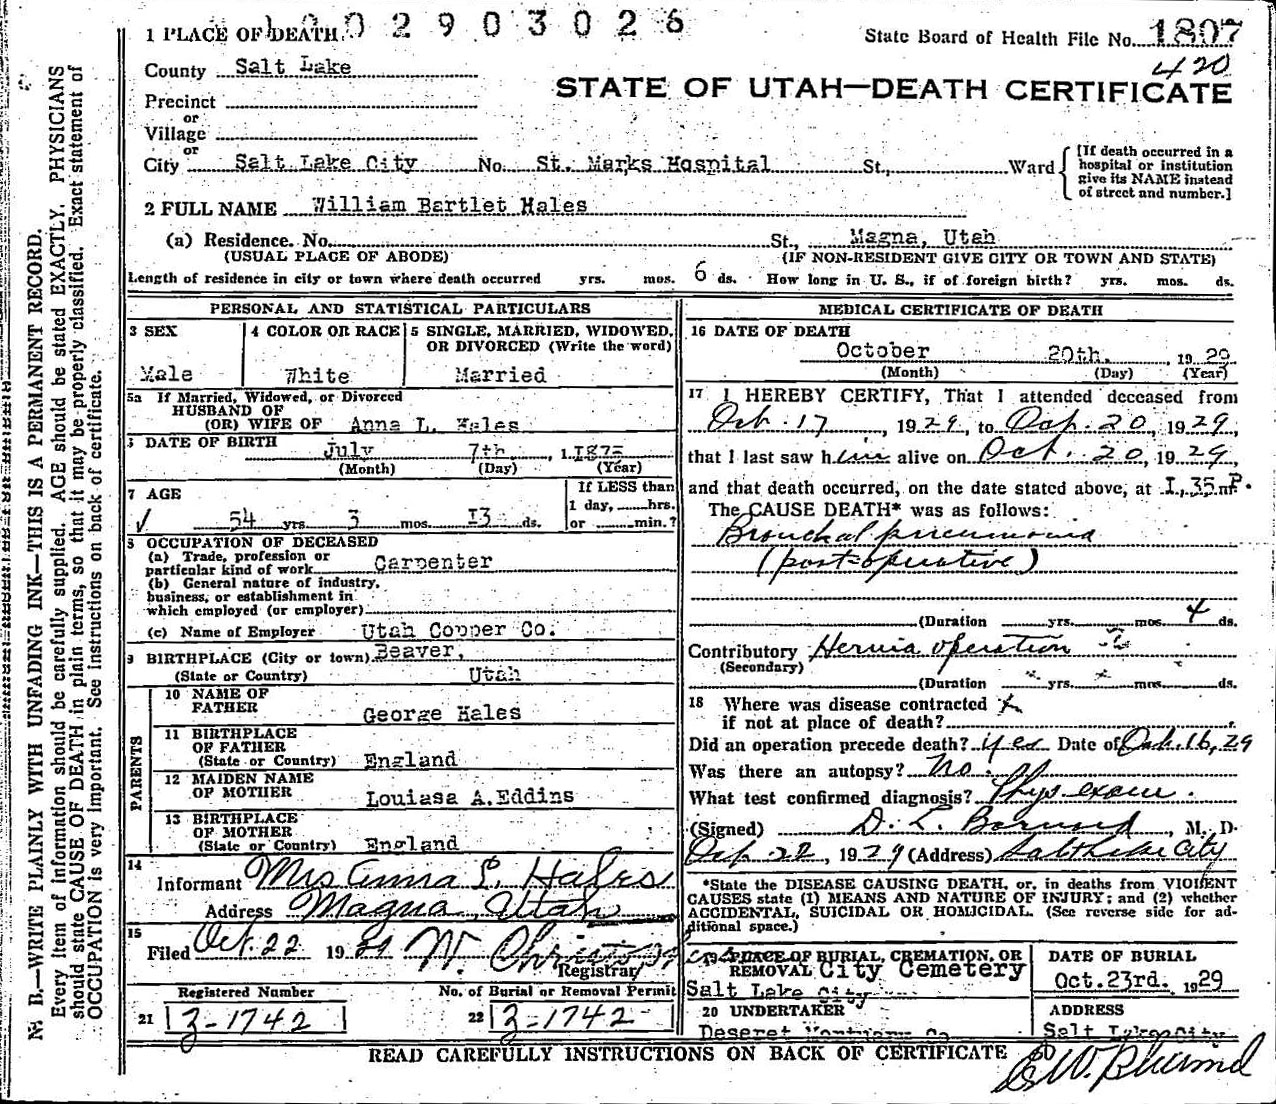 1 PLACE OF DEATH 002903026
State Board of Health File No. 1807
420
County Salt Lake
STATE OF UTAH—DEATH CERTIFICATE
Precinct
or
Village
or
City Salt Lake City No. St. Marks Hospital St., Ward
[If death occurred in a
hospital or institution
give its NAME instead
of street and number.]
2 FULL NAME William Bartlet Hales
(a) Residence. No. St., Magna, Utah
(USUAL PLACE OF ABODE) (IF NON-RESIDENT GIVE CITY OR TOWN AND STATE)
Length of residence in city or town where death occurred yrs. mos. 6 ds. How long in U. S., if of foreign birth? yrs. mos. ds.
PERSONAL AND STATISTICAL PARTICULARS
3 SEX
Male
4 COLOR OR RACE
White
5 SINGLE, MARRIED, WIDOWED,
OR DIVORCED (Write the word)
Married
5a If Married, Widowed, or Divorced
HUSBAND OF
(OR) WIFE OF Anna L. Hales
DATE OF BIRTH
July 7th, 1875
(Month) (Day) (Year)
7 AGE
54 yrs. 3 mos. 13 ds.
If LESS than
1 day, hrs.
or min.?
8 OCCUPATION OF DECEASED
(a) Trade, profession or
particular kind of work Carpenter
(b) General nature of industry,
business, or establishment in
which employed (or employer)
(c) Name of Employer Utah Copper Co.
9 BIRTHPLACE (City or town) Beaver,
(State or Country) Utah
PARENTS
10 NAME OF
FATHER George Hales
11 BIRTHPLACE
OF FATHER
(State or Country) England
12 MAIDEN NAME
OF MOTHER Louiasa A. Eddins
13 BIRTHPLACE
OF MOTHER
(State or Country) England
14
Informant Mrs Anna L. Hales
Address Magna, Utah
15
Filed Oct. 22 1929 W. Christo
Registrar
Registered Number
21 3-1742
No. of Burial or Removal Permit
22 3-1742
MEDICAL CERTIFICATE OF DEATH
16 DATE OF DEATH
October 20th. , 1929
(Month) (Day) (Year)
17 I HEREBY CERTIFY, That I attended deceased from
Oct. 17, 1929, to Oct. 20, 1929,
that I last saw him alive on Oct. 20, 1929,
and that death occurred, on the date stated above, at 1.35 m P.
The CAUSE DEATH* was as follows:
Bronchal pneumonia
(post-operative)
(Duration yrs. mos. 4 ds.
Contributory Hernia operation
(Secondary)
(Duration yrs. mos. ds.
18 Where was disease contracted
if not at place of death?
Did an operation precede death? yes Date of Oct. 16, 29
Was there an autopsy? No.
What test confirmed diagnosis? Phys exam.
(Signed) D. L. , M. D.
Oct. 22, 1929 (Address) Salt Lake City
*State the DISEASE CAUSING DEATH, or, in deaths from VIOLENT
CAUSES state (1) MEANS AND NATURE OF INJURY; and (2) whether
ACCIDENTAL, SUICIDAL OR HOMICIDAL. (See reverse side for ad-
ditional space.)
19 PLACE OF BURIAL, CREMATION, OR
REMOVAL City Cemetery
Salt Lake City
DATE OF BURIAL
Oct. 23rd. 1929
20 UNDERTAKER
Deseret Mortuary Co
ADDRESS
Salt Lake City
READ CAREFULLY INSTRUCTIONS ON BACK OF CERTIFICATE
N. B.—WRITE PLAINLY WITH UNFADING INK—THIS IS A PERMANENT RECORD.
Every item of information should be carefully supplied. AGE should be stated EXACTLY. PHYSICIANS
should state CAUSE OF DEATH in plain terms, so that it may be properly classified. Exact statement of
OCCUPATION is very important. See Instructions on back of certificate.